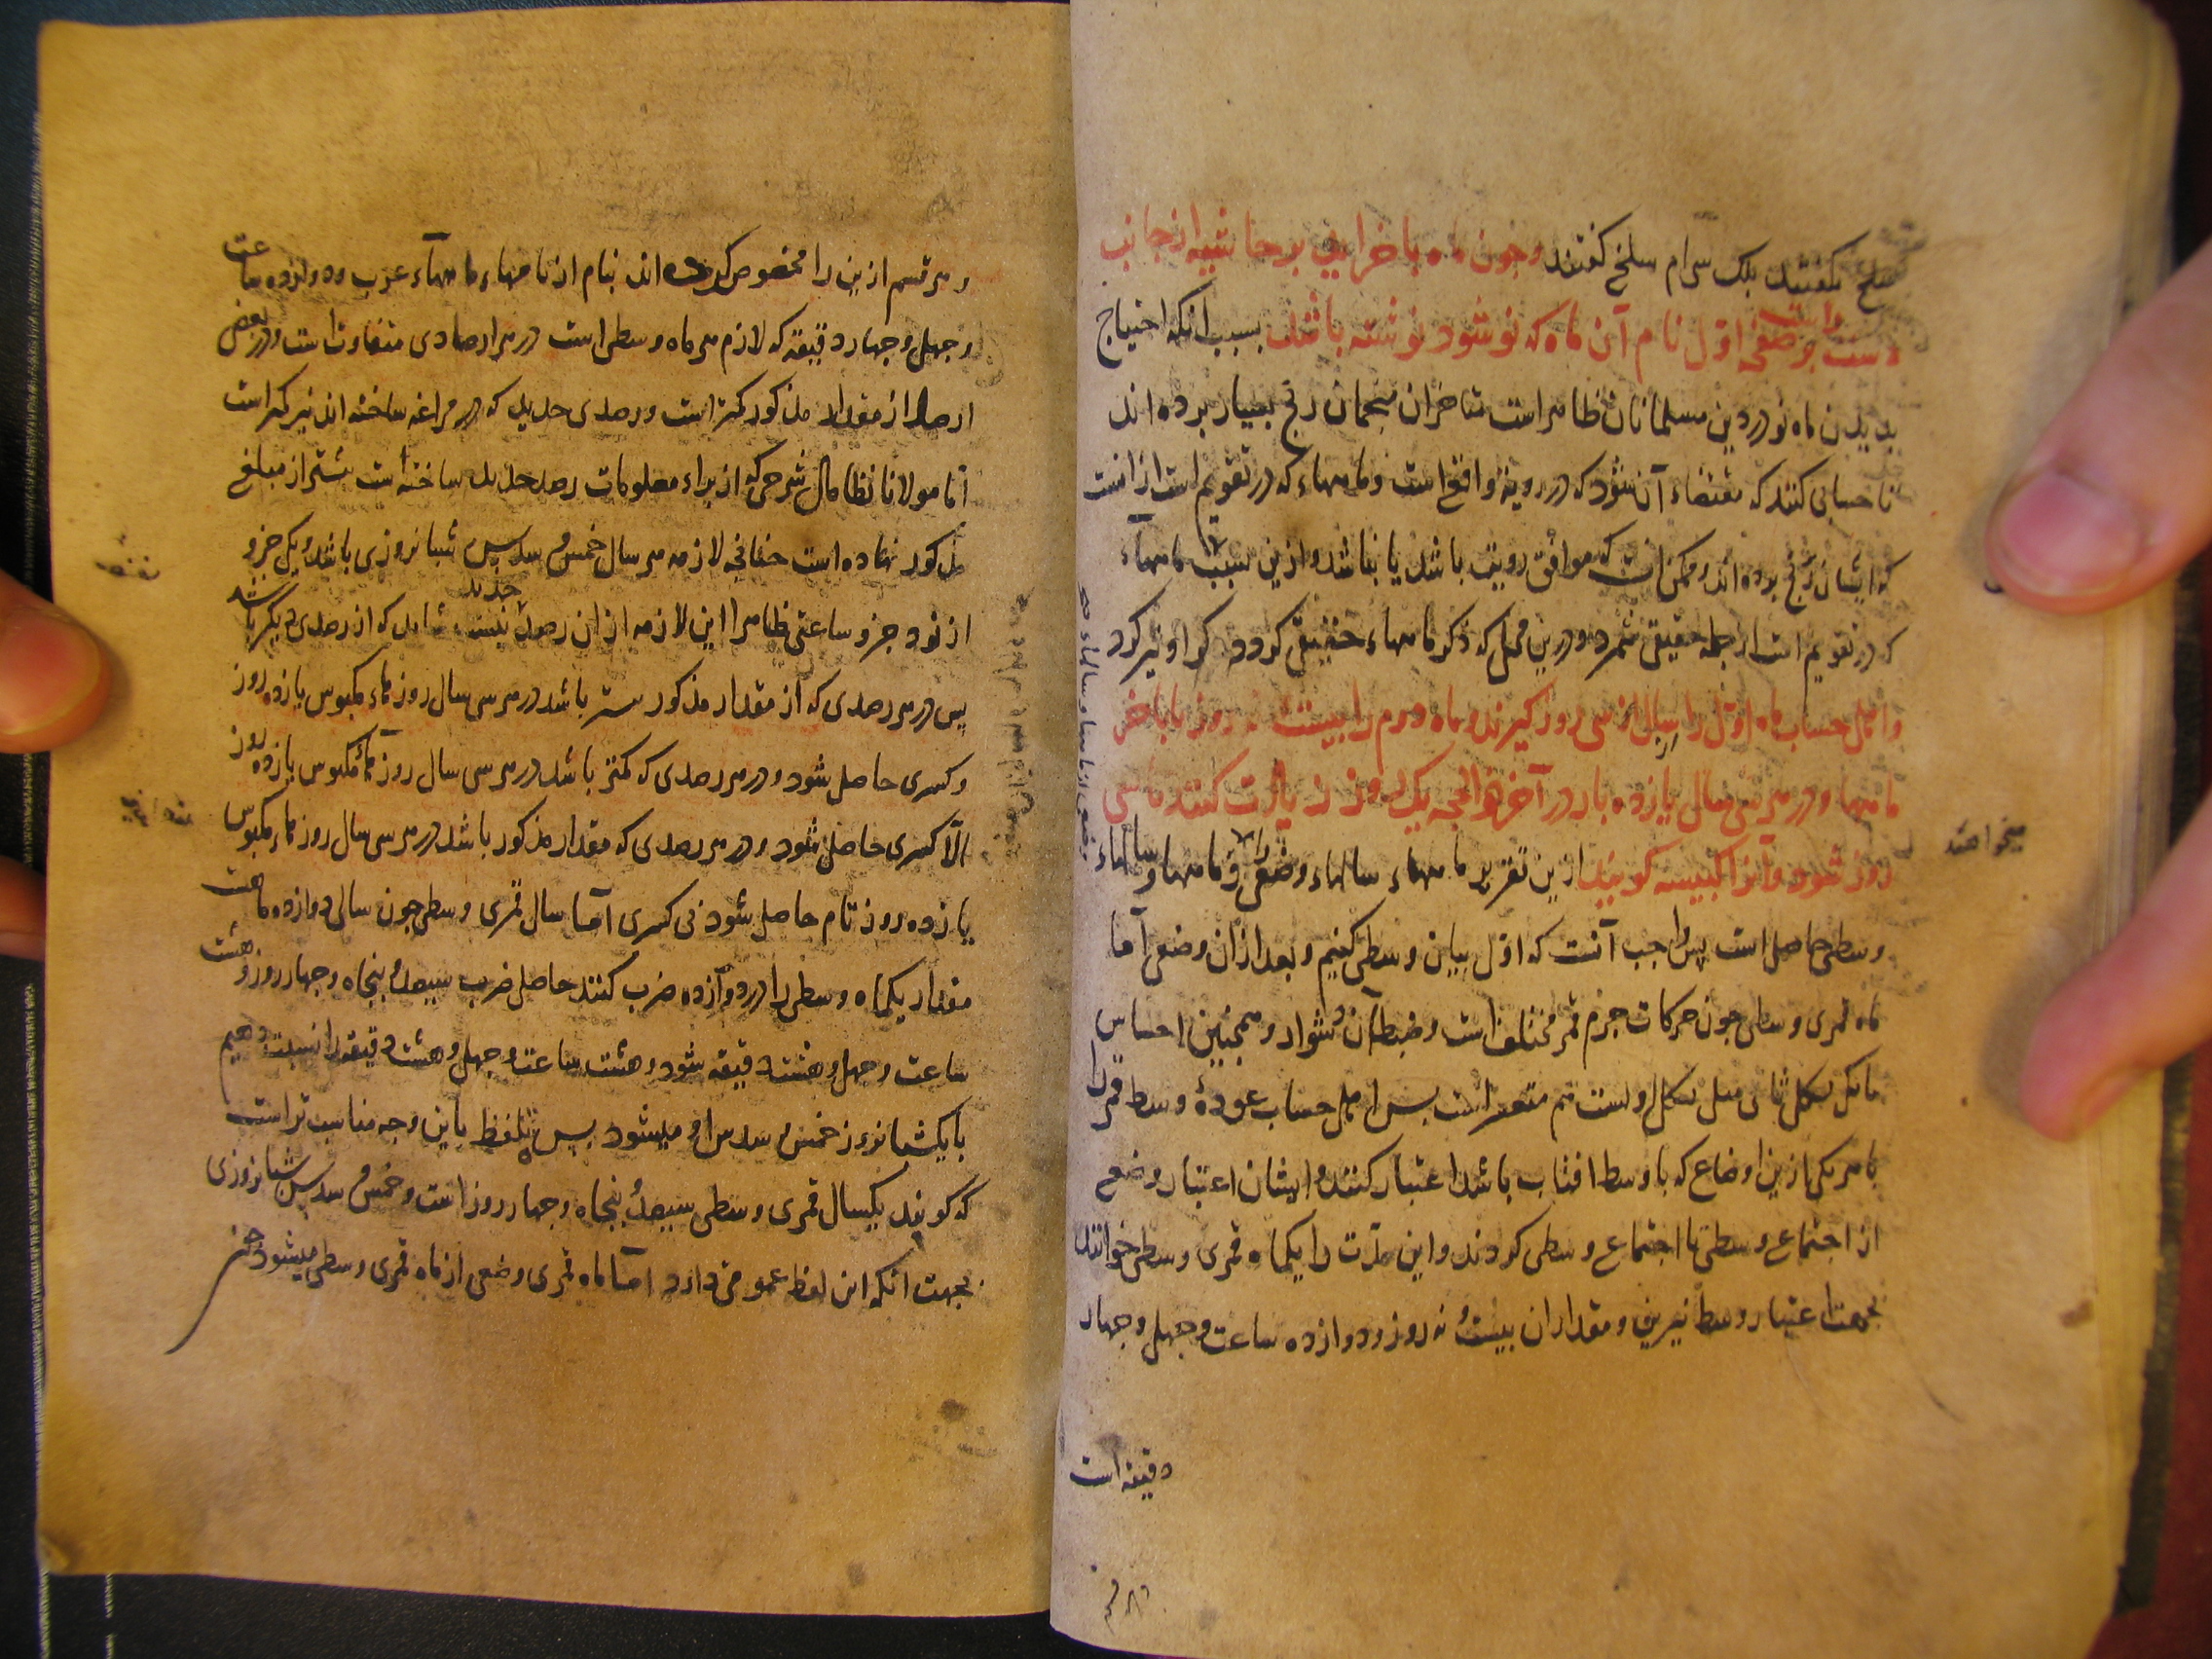 سلخ نکفتند بلک سرام سلخ کفتند وجون ماه باخر این بر حاشیه از جانب
دست راست بر صفحه اول نام آن ماه که نو شود نوشته باشند بسبب آنکه احتیاج
بدیدن ماه نو در دین مسلمانان ظاهر است متاخران منجمان رنج بسیار برده اند
تا حسابی کنند که مقتضاء آن شود که در رویة واقع است وماههاء که در تقویم است از انست
که ایشان رنج برده اند و ممکن است که موافق رویت باشد یا نباشد و ازین سبب ماههاء
که در تقویم است از جمله حقیقی شمرد و درین محل که ذکر ماههاء حقیقی کرد ذکر او نیز کرد
واهل حساب ماه اول را سال از سی روز کیرند و ماه دوم را بیست نه روز تا باخر
ماهها و در هر سی سال یازده بار در آخر ذوالحجه یک روز زیادت کنند تا سی
روز شود و آنرا کبیسه کویند ازین تقریر ماههاء سالهاء وضعی را وماهها وسالهاء
وسطی حاصل است پس واجب آنست که اول بیان وسطی کنیم و بعد از آن وضعی اما
ماه قمری وسطی جون حرکات جرم قمر مختلف است وضبط آن دشوار و همجنین احساس
شکل ثانی مثل شکل اولست هم متعسر است پس اهل حساب عودهٔ وسط قمر را
با هر یکی ازین اوضاع که با وسط افتاب باشد اعتبار کنند و ایشان اعتبار وضعی
از اجتماع وسطی تا اجتماع وسطی کردند و این مدت را یکماه قمری وسطی خوانند
بجهت اعتبار وسط نیرین و مقدار ان بیست و نه روز و دوازده ساعت و جهل و جهار
دقیقه است
میخواهند
و هر قسم ازین را مخصوص کرده اند بنام از نامهاء ماههاء عرب و دوازده ساعت
و جهل و جهار دقیقه که لازم هر ماه وسطی است در هر ارصادی متفاوت است و در بعض
ارصاد از مقدار مذکور کمتر است و رصدی جدید که در مراغه ساخته اند نیز کمتر است
اما مولانا نظام در شرحی که از براء معلومات رصد جدید ساخته است بیشتر از مبلغ
مذکور نهاده است جنانج لازمه هر سال خمس و سدس شبانروزی باشد و یک جزو
از نود جزو ساعتی ظاهرا این لازمه از ان رصد جدید نیست شاید که از رصدی دیکر باشد
پس در هر رصدی که از مقدار مذکور بیشتر باشد در هر سی سال روزهاء مکبوس یازده روز
و کسری حاصل شود و در هر رصدی که کمتر باشد در هر سی سال روزهاء مکبوس یازده روز
الا کسری حاصل شود و در هر رصدی که مقدار مذکور باشد در هر سی سال روزهاء مکبوس
یازده روز تام حاصل شود بی کسری اما سال قمری وسطی جون سالی دوازده ماهست
مقدار یکماه وسطی را در دوازده ضرب کنند حاصل ضرب سیصد و پنجاه و جهار روز و هشت
ساعت و جهل و هشت دقیقه شود و هشت ساعت و جهل و هشت دقیقه را نسبت دهیم
با یکشبانروز خمس و سدس او میشود پس تلفظ باین وجه مناسب تر است
که کویند یکسال قمری وسطی سیصد و پنجاه و جهار روز است و خمس و سدس شبانروزی
بجهت انکه این لفظ عمومی دارد اما ماه قمری وضعی از ماه قمری وسطی میشود جنز